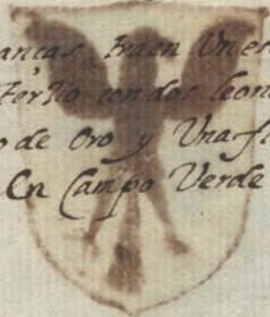 ancas traen Un es
Fertio con dos leon
o de Oro y Una fl
En Campo Verde